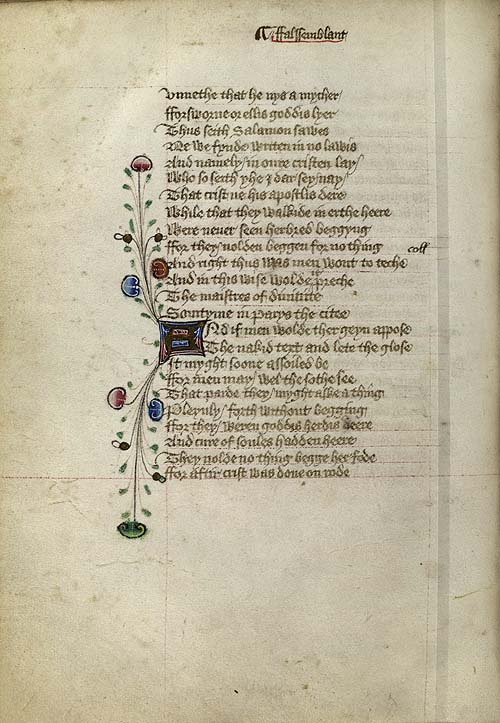 ¶ ffalssemblant
Vnnethe that he nys a mycher
fforsworne or ellis goddis lyer
Thus seith Salamon sawes
Ne we fynde writen in no lawis
And namely / in oure cristen lay /
Who so seith yhe I dar sey nay /
That crist ne his apostlis dere
While that they walkide in erthe heere
Were neuer seen herbred beggyng
ffor they nolden beggen for no thing
And right thus was men wont to teche
And in this wise wolde it preche
The maistres of diuinite
Somtyme in parys the citee
And if men wolde ther geyn appose
The nakid text and lete the glose
It myght soone assoiled be
ffor men may / wel the sothe see
That parde they / myght aske a thing
Pleynly / forth without begging
ffor they / weren goddis herdis deere
And cure of soules hadden heere
They nolde no thing begge her fode
ffor aftir crist was done on rode